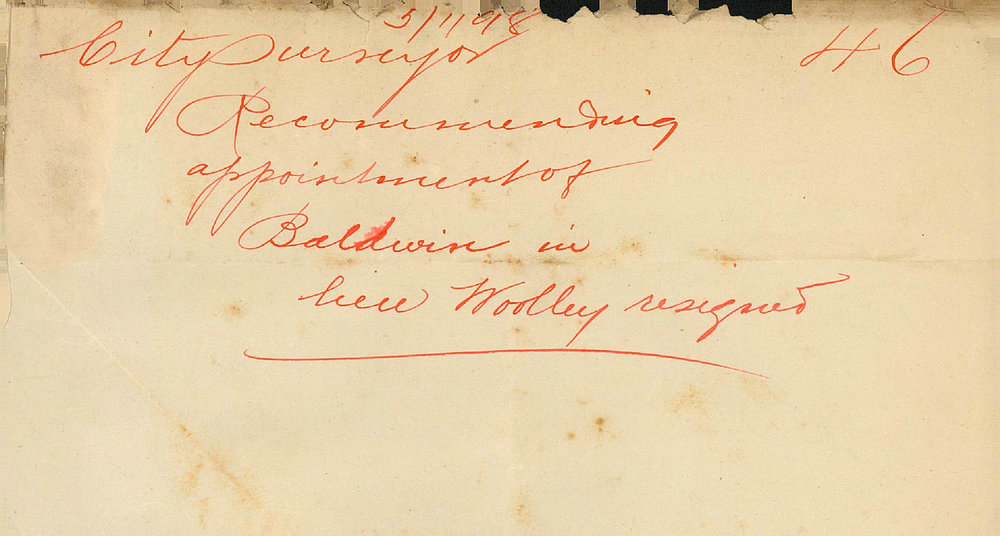 5/11/98
City Surveyor 46
Recommending
appointment of
Baldwin in
lieu Woolley resigned